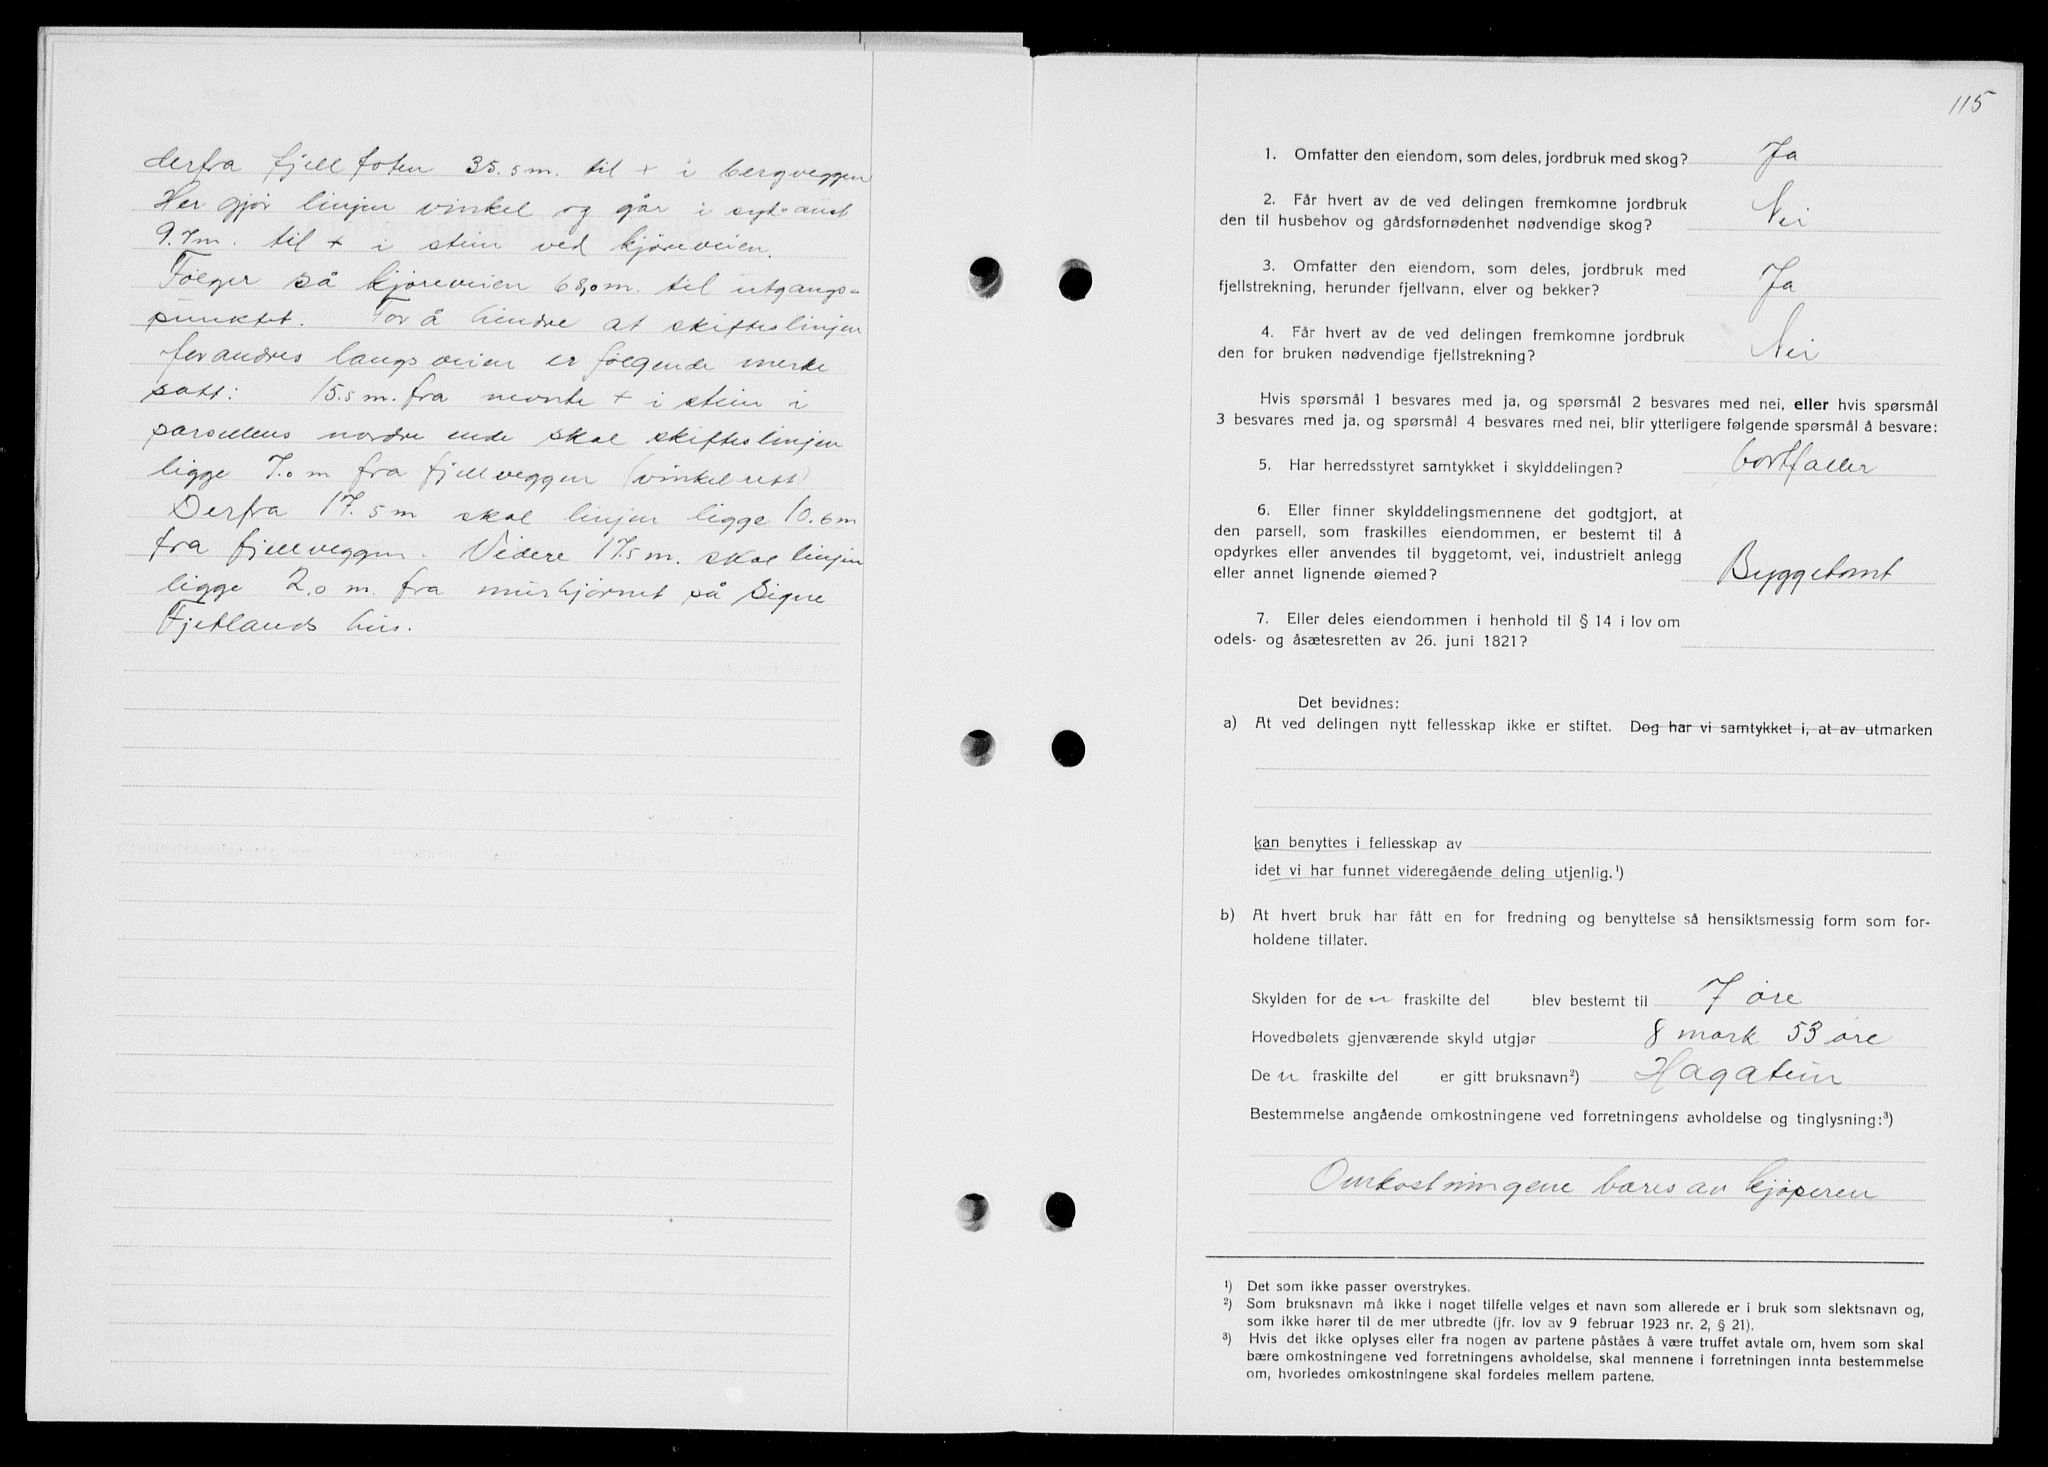 derfra fjellfoten 35.5 m. til + i bergveggen
Her gjør linjen vinkel og går i syd-aust
9.7m. til + i stein ved kjøreveien.
Følger så kjøreveien 68,0m. til utgangs-
punktet. For å hindre at skifteslinjen
forandres langs veien er følgende merke
satt: 15.5 m. fra nevnte + i stein i
parsellens nordre ende skal skifteslinjen
ligge 7.0 m fra fjellveggen (vinkelrett)
Derfra 17.5m skal linjen ligge 10.6m
fra fjellveggen. Videre 17.5m. skal linjen
ligge 2.0 m. fra murhjørnet på Signe
Fjetlands hus.
115
1. Omfatter den eiendom, som deles, jordbruk med skog? Ja
2. Får hvert av de ved delingen fremkomne jordbruk
den til husbehov og gårdsfornødenhet nødvendige skog? Nei
3. Omfatter den eiendom, som deles, jordbruk med
fjellstrekning, herunder fjellvann, elver og bekker? Ja
4. Får hvert av de ved delingen fremkomne jordbruk
den for bruken nødvendige fjellstrekning? Nei
Hvis spørsmål 1 besvares med ja, og spørsmål 2 besvares med nei, eller hvis spørsmål
3 besvares med ja, og spørsmål 4 besvares med nei, blir ytterligere følgende spørsmål å besvare:
5. Har herredsstyret samtykket i skylddelingen? bortfaller
6. Eller finner skylddelingsmennene det godtgjort, at
den parsell, som fraskilles eiendommen, er bestemt til å
opdyrkes eller anvendes til byggetomt, vei, industrielt anlegg
eller annet lignende øiemed? Byggetomt
7. Eller deles eiendommen i henhold til § 14 i lov om
odels- og åsætesretten av 26. juni 1821?
Det bevidnes:
a) At ved delingen nytt fellesskap ikke er stiftet. Dog har vi samtykket i, at av utmarken
kan benyttes i fellesskap av
idet vi har funnet videregående deling utjenlig.¹)
b) At hvert bruk har fått en for fredning og benyttelse så hensiktsmessig form som for-
holdene tillater.
Skylden for den fraskilte del blev bestemt til 7 øre
Hovedbølets gjenværende skyld utgjør 8 mark 53 øre
Den fraskilte del er gitt bruksnavn²) Hagatun
Bestemmelse angående omkostningene ved forretningens avholdelse og tinglysning:³)
Omkostningene bæres av kjøperen
¹) Det som ikke passer overstrykes.
²) Som bruksnavn må ikke i noget tilfelle velges et navn som allerede er i bruk som slektsnavn og,
som ikke hører til de mer utbredte (jfr. lov av 9 februar 1923 nr. 2, § 21).
³) Hvis det ikke oplyses eller fra nogen av partene påståes å være truffet avtale om, hvem som skal
bære omkostningene ved forretningens avholdelse, skal mennene i forretningen innta bestemmelse
om, hvorledes omkostningene skal fordeles mellem partene.